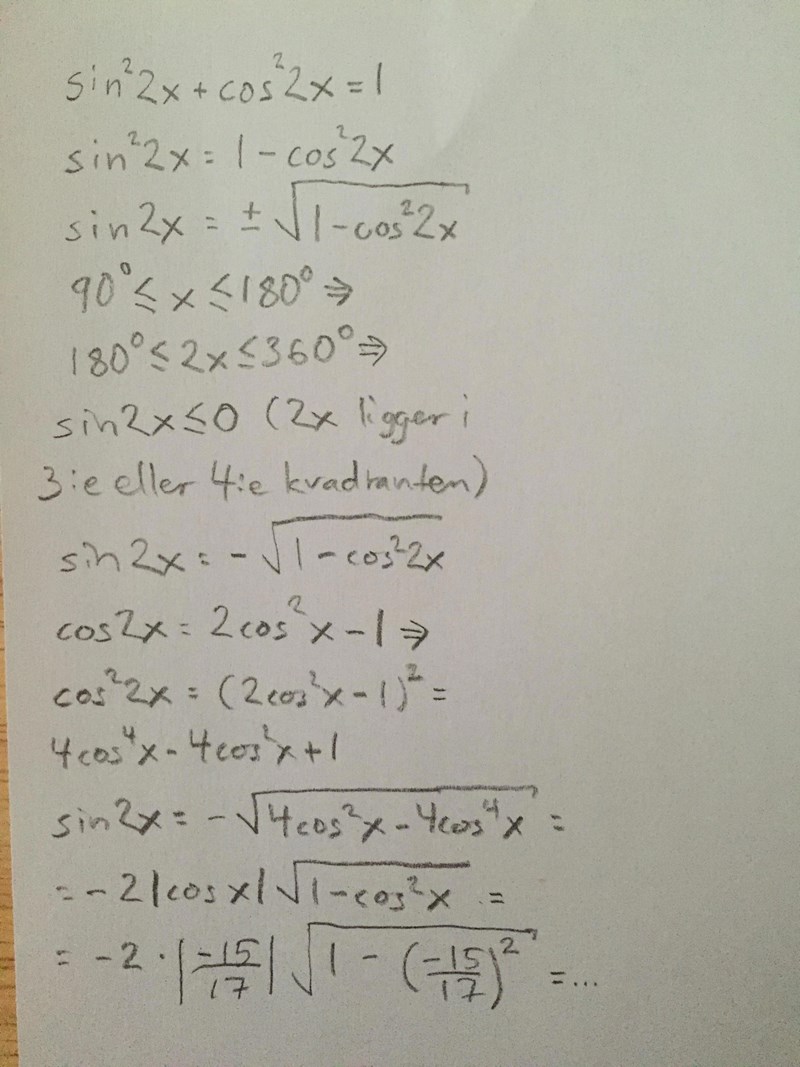 sin²2x + cos²2x = 1
sin²2x = 1 - cos²2x
sin2x = ± √(1-cos²2x)
90° ≤ x ≤ 180° ⇒
180° ≤ 2x ≤ 360° ⇒
sin2x ≤ 0 (2x ligger i
3:e eller 4:e kvadranten)
sin2x = - √(1-cos²2x)
cos2x = 2cos²x - 1 ⇒
cos²2x = (2cos²x - 1)² =
4cos⁴x - 4cos²x + 1
sin2x = - √(4cos²x - 4cos⁴x) =
= -2|cosx| √(1-cos²x) =
= -2 · |-15/17| √(1 - (-15/17)²) = ...